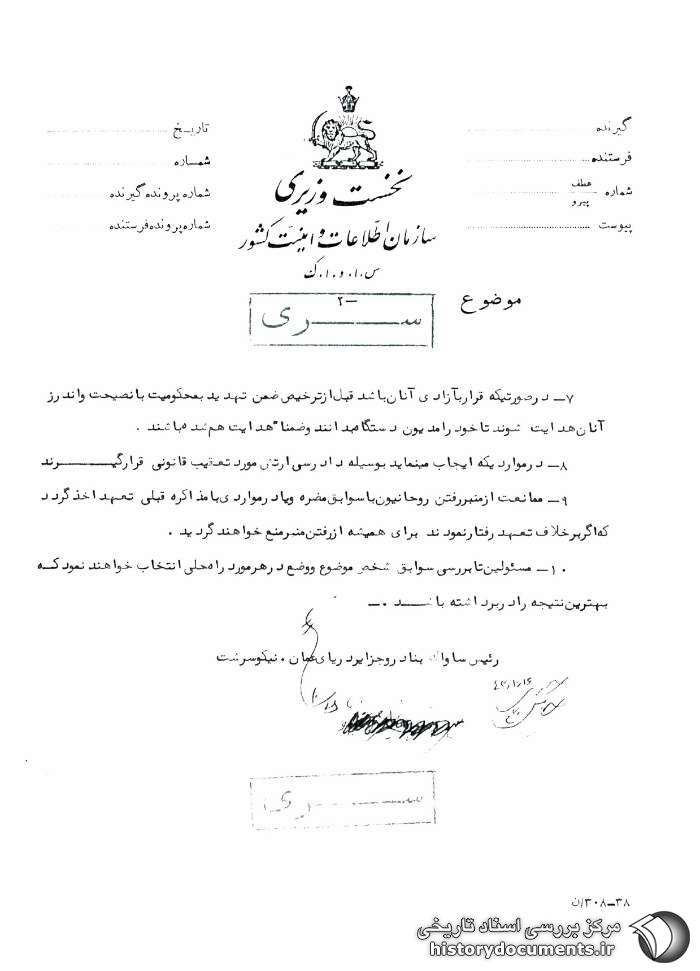 گیرنده
فرستنده
شماره عطف پیرو
پیوست
تاریخ
شماره
شماره پرونده گیرنده
شماره پرونده فرستنده
نخست وزیری
سازمان اطلاعات و امنیت کشور
س.ا.و.ا.ک
موضوع
-۲
سری
۷ــ درصورتیکه قراربآزادی آنان باشد قبل ازترخیص ضمن تهدید بمحکومیت بانصیحت واندرز
آنان هدایت شوند تاخود رامدیون دستگاه بدانند وضمنا" هدایت هم شده باشند .
۸ــ درمواردیکه ایجاب مینماید بوسیله دادرسی ارتش مورد تعقیب قانونی قرارگیرند
۹ــ ممانعت ازمنبررفتن روحانیون باسوابق مضره ویادرمواردی بامذاکره قبلی تعهد اخذ گردد
که اگربرخلاف تعهد رفتارنمودند برای همیشه ازرفتن منبرمنع خواهند گردید .
۱۰ــ مسئولین تابررسی سوابق شخص موضوع ووضع درهرمورد راه حلی انتخاب خواهند نمود که
بهترین نتیجه رادربرداشته باشد .ــ
رئیس ساواک بنادر وجزایر دریای عمان . نیکوسرشت
سری
۳۰۸ــ۳۸/ن
مرکز بررسی اسناد تاریخی
historydocuments.ir